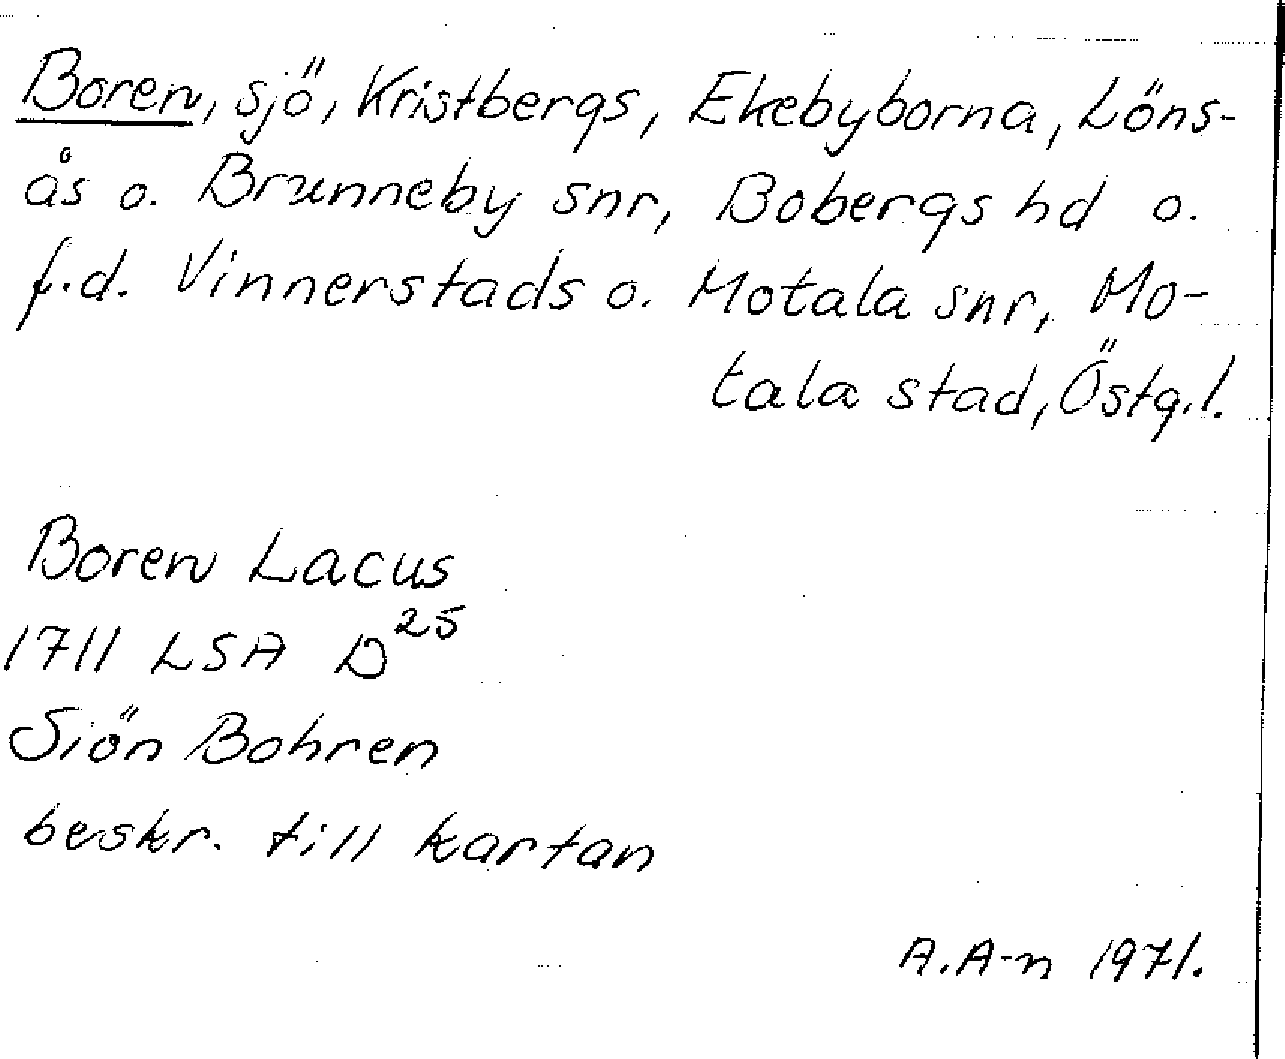 Boren, sjö, Kristbergs, Ekebyborna, Löns-
ås o. Brunneby snr, Bobergs hd o.
f.d. Vinnerstads o. Motala snr, Mo-
tala stad, Östg.l.
Boren Lacus
1711 LSA D25
Siön Bohren
beskr. till kartan
A.A-n 1971.